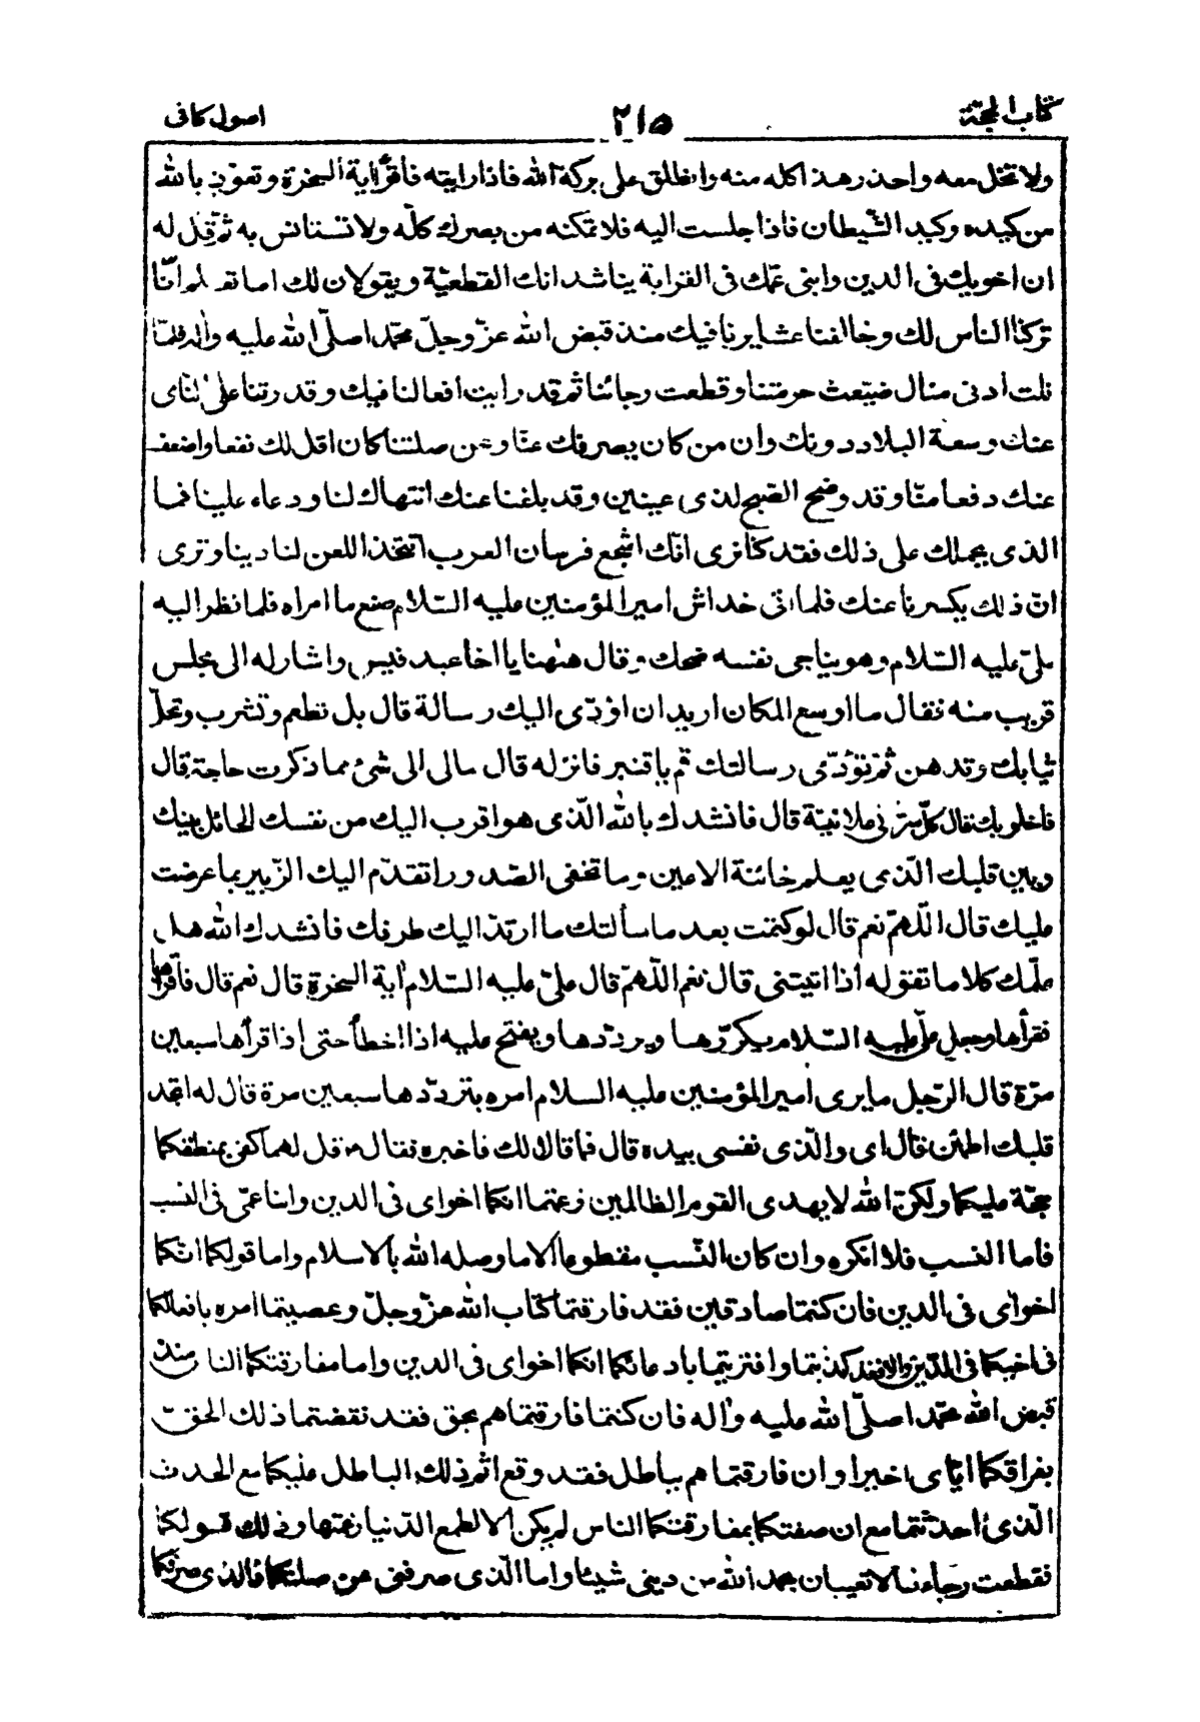 كتاب الحجة
٢١٥
اصول كافى
ولا تخل معه واحذر هذا كله منه وانطلق على بركة الله فاذا رايته فأقرأ اية السخرة وتعوذ بالله
من كيده وكيد الشيطان فاذا جلست اليه فلا تمكنه من بصرك كله ولا تستانس به ثم قل له
ان اخويك فى الدين وابنى عمك فى القرابة يناشدانك القطعية ويقولان لك اما تعلم انا
تركنا الناس لك وخالفنا عشايرنا فيك منذ قبض الله عز وجل محمدا صلى الله عليه واله فلما
نلت أدنى منال ضيعت حرمتنا وقطعت رجائنا ثم قد رايت افعالنا فيك وقدرتنا على النأى
عنك وسعة البلاد دونك وان من كان يصرفك عنا وعن صلتنا كان اقل لك نفعا واضعف
عنك دفعا منا وقد وضح الصبح لذى عينين وقد بلغنا عنك انتهاك لنا ودعاء علينا فما
الذى يحملك على ذلك فقد كنا نرى انك اشجع فرسان العرب اتتخذ اللعن لنا دينا وترى
ان ذلك يكسرنا عنك فلما اتى خداش امير المؤمنين عليه السلام صنع ما امراه فلما نظر اليه
على عليه السلام وهو يناجى نفسه ضحك وقال ههنا يا اخا عبد قيس واشار له الى مجلس
قريب منه فقال ما اوسع المكان اريد ان اؤدى اليك رسالة قال بل تطعم وتشرب وتحل
ثيابك وتدهن ثم تؤدى رسالتك قم يا قنبر فانزله قال مالى الى شئ مما ذكرت حاجة قال
فاخلو بك قال كل سر لى علانية قال فانشدك بالله الذى هو اقرب اليك من نفسك الحائل بينك
وبين قلبك الذى يعلم خائنة الاعين وما تخفى الصدور اتقدم اليك الزبير بما عرضت
عليك قال اللهم نعم قال لو كتمت بعد ما سألتك ما ارتد اليك طرفك فانشدك الله هل
علمك كلاما تقوله اذا اتيتنى قال نعم اللهم قال على عليه السلام اية السخرة قال نعم قال فأقرأها
فقرأها وجعل على عليه السلام يكررها ويرددها ويفتح عليه اذا اخطأ حتى اذا قرأها سبعين
مرة قال الرجل ما يرى امير المؤمنين عليه السلام امره بترددها سبعين مرة قال له اتجد
قلبك اطمئن قال اى والذى نفسى بيده قال فما قالا لك فاخبره فقال قل لهما كفى بمنطقكما
حجة عليكما ولكن الله لا يهدى القوم الظالمين زعمتما انكما اخواى فى الدين وابنا عمى فى النسب
فأما النسب فلا انكره وان كان النسب مقطوعا الا ما وصله الله بالاسلام واما قولكما انكما
اخواى فى الدين فان كنتما صادقين فقد فارقتما كتاب الله عز وجل وعصيتما امره بافعالكما
فى اخيكما فى الدين والا فقد كذبتما وافتريتما بادعائكما انكما اخواى فى الدين واما مفارقتكما الناس منذ
قبض الله محمدا صلى الله عليه واله فان كنتما فارقتماهم بحق فقد نقضتما ذلك الحق
بفراقكما اياى اخيرا وان فارقتماهم بباطل فقد وقع اثم ذلك الباطل عليكما مع الحدث
الذى احدثتما مع ان صفتكما بمفارقتكما الناس لم يكن الا لطمع الدنيا زعمتما وذلك قولكما
فقطعت رجاءنا لا تعيبان بحمد الله من دينى شيئا واما الذى صرفنى عن صلتكما فالذى صرفكما